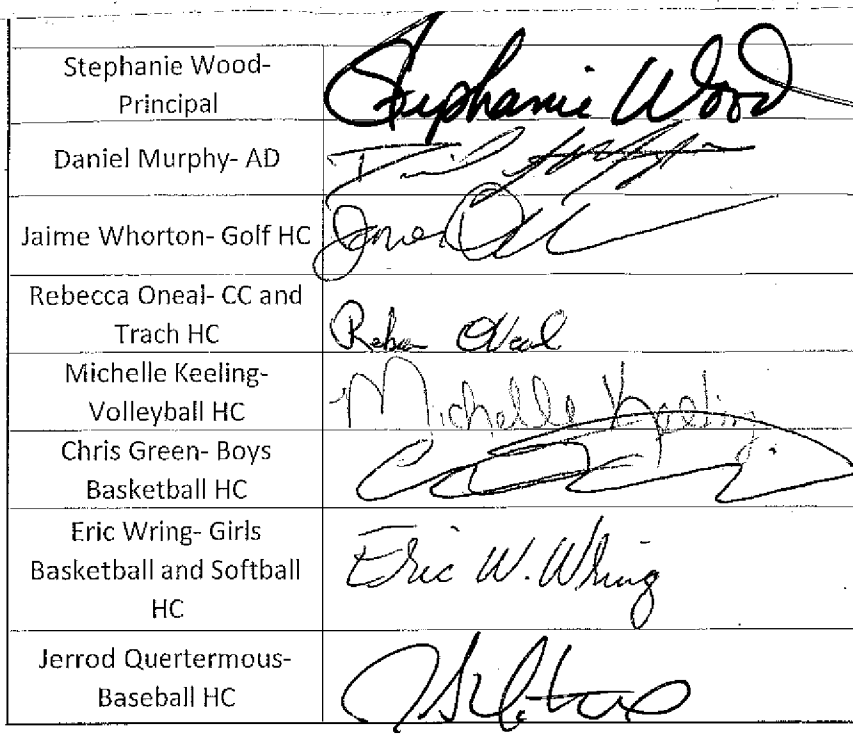 Stephanie Wood-
Principal
Stephanie Wood
Daniel Murphy- AD
Jaime Whorton- Golf HC
Rebecca Oneal- CC and
Trach HC
ONeal
Michelle Keeling-
Volleyball HC
Michelle Keeling
Chris Green- Boys
Basketball HC
Eric Wring- Girls
Basketball and Softball
HC
Eric W. Wring
Jerrod Quertermous-
Baseball HC